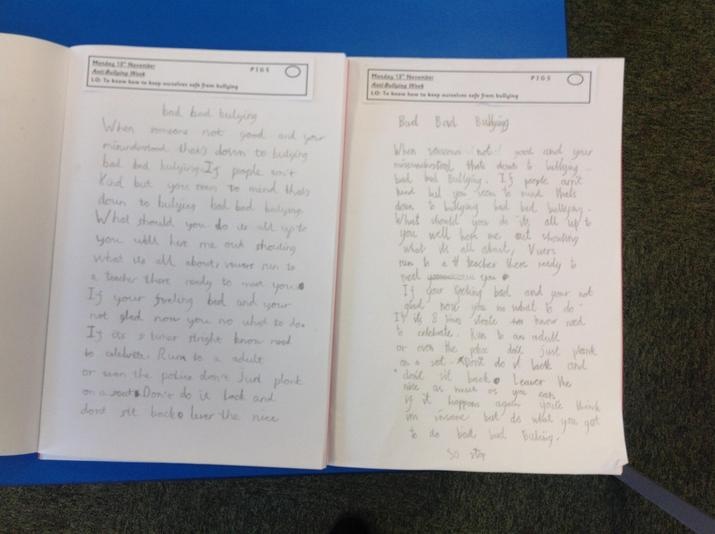 Monday 13th November
P I G S
Anti-Bullying Week
LO: To know how to keep ourselves safe from bullying
bad bad bullying
When someone not good and your
misunderstood thats down to bullying
bad bad bullying. If people isn't
Kind but you seem to mind thats
down to bullying bad bad bullying.
What should you do its all up to
you will hire me out shouting
what its all about, run to
a teacher there ready to meet you.
If your feeling bad and your
not glad now you no what to do.
If its s times know need
to celebrate. Run to a adult
or even the police don't just plonk
on a Don't do it back and
dont sit back. lever the nice
Monday 13th November
P I G S
Anti-Bullying Week
LO: To know how to keep ourselves safe from bullying
Bad Bad Bullying
When someone not good and your
misunderstood thats down to bullying.
bad bad Bullying. If people arnt
kind but you seem to mind thats
down to bullying bad bad bullying.
What should you do its all up to
you well here me out shouting
what its all about,
run to a teacher there ready to
meet you.
If your feeling bad and your not
glad now you no what to do.
If its 8 times know need
to celebrate. Run to an adult
or even the police don't just plonk
on a Dont do it back and
dont sit back. Leaver the
nice as much as you can
if it happens again you're think
im insane but do what you got
to do bad bad Bullying.
so stop